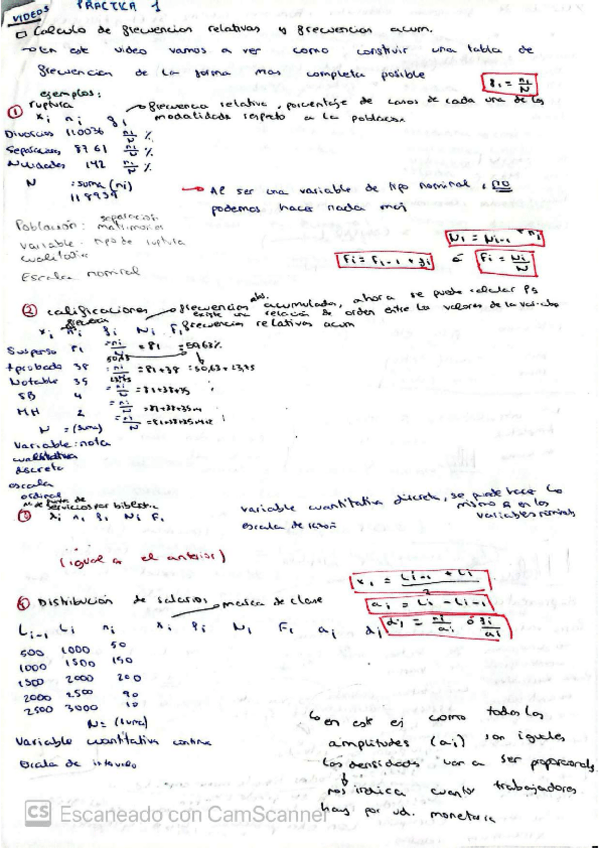 VIDEOS PRÁCTICA 1
Calculo de frecuencias relativas y frecuencias acum.
→ en este video vamos a ver como construir una tabla de
frecuencias de la forma mas completa posible
fi = ni/N
ejemplos:
① ruptura
xi ni fi → frecuencia relativa, porcentaje de casos de cada una de las
modalidades respecto a la poblacion
Divorcios 110036 ni/N %
Separaciones 8761 ni/N %
Nulidades 142 ni/N %
N = suma (ni)
118939
→ Al ser una variable de tipo nominal, no
podemos hacer nada mas
Población: separacios matrimonios
Variable: tipo de ruptura
cualitativa
Escala nominal
Ni = Ni-1 + ni
Fi = Fi-1 + fi ó Fi = Ni/N
② calificaciones → frecuencias abs. acumuladas, ahora se puede calcular
existe una relación de orden entre los valores de la variable
xi ni fi Ni Fi frecuencias relativas acum
Suspenso 81 = ni/N = 81 = 50,63%
50,63
Aprobado 38 = ni/N = 81+38 = 50,63 + 23,75
23,75
Notable 35 = ni/N = 81+38+35
SB 4 = ni/N
MH 2 = ni/N
N = (suma)
Variable: nota
cualitativa
discreta
escala
ordinal
③ xi ni fi Ni Fi
variable cuantitativa discreta, se puede hacer lo
mismo en los
variables nominals
escala de razón
(igual a el anterior)
xi = Li-1 + Li / 2
ai = Li - Li-1
④ Distribución de salarios → marca de clase
di = ni/ai ó fi/ai
Li-1 Li ni xi fi Ni Fi ai di
500 1000 50
1000 1500 150
1500 2000 200
2000 2500 90
2500 3000 10
N = (suma)
Variable cuantitativa continua
Escala de intervalo
↳ en este ej como todas las
amplitudes (ai) son iguales
las densidades van a ser proporcionals
nos indica cuantos trabajadores
hay por ud. monetaria
CS Escaneado con CamScanner